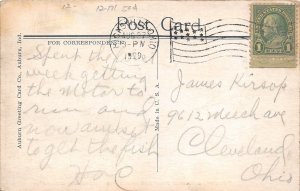 12-
12-MI 504
Post Card
FOR CORRESPONDENCE
AUG
PM
1929
1 CENT 1
Auburn Greeting Card Co., Auburn, Ind.
Made in U. S. A.
Spent the
week getting
the motor to
run and
now am set
to get the fish
James Kirsop
9612 Meech ave
Cleveland
Ohio